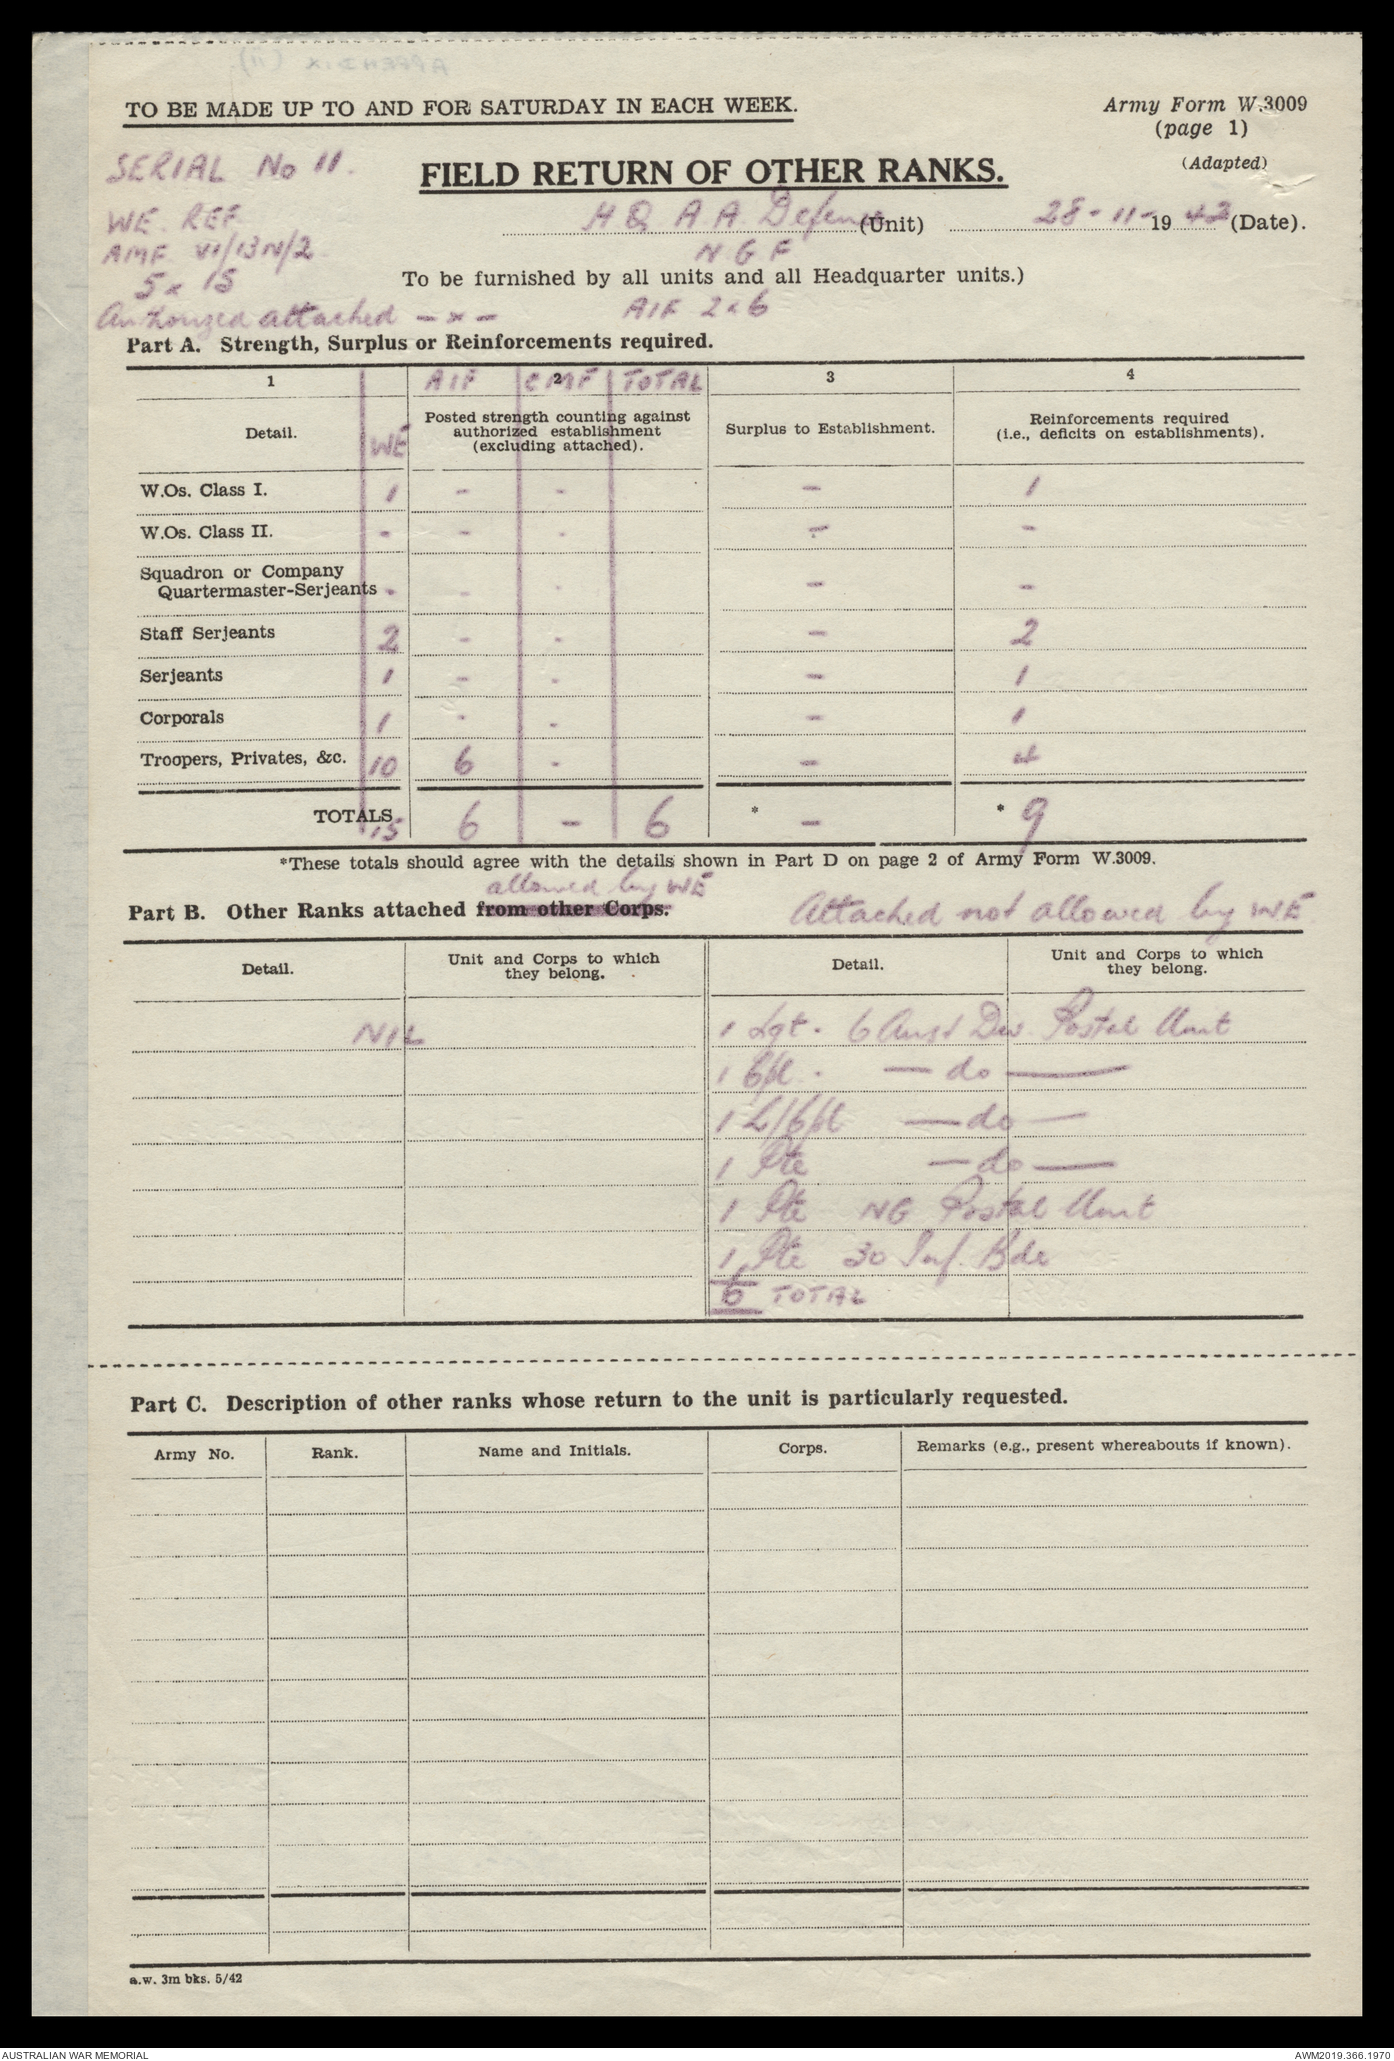 TO BE MADE UP TO AND FOR SATURDAY IN EACH WEEK.
Army Form W.3009
(page 1)
(Adapted)
SERIAL No 11.
FIELD RETURN OF OTHER RANKS.
WE. REF.
H Q A A Defence (Unit) 28-11-19 42 (Date).
AMF VI/13N/2
N G F
5 x 15
To be furnished by all units and all Headquarter units.)
Authorized attached - x -
AIF 2 x 6
Part A. Strength, Surplus or Reinforcements required.
1 AIF 2 CMF TOTAL 3 4
Detail. WE Posted strength counting against authorized establishment (excluding attached). Surplus to Establishment. Reinforcements required (i.e., deficits on establishments).
W.Os. Class I. 1 - - - 1
W.Os. Class II. - - - - -
Squadron or Company
Quartermaster-Serjeants - - - - -
Staff Serjeants 2 - - - 2
Serjeants 1 - - - 1
Corporals 1 - - - 1
Troopers, Privates, &c. 10 6 - - 4
TOTALS 15 6 - 6 * - * 9
*These totals should agree with the details shown in Part D on page 2 of Army Form W.3009.
allowed by WE
Part B. Other Ranks attached from other Corps. Attached not allowed by WE
Detail. Unit and Corps to which they belong. Detail. Unit and Corps to which they belong.
NIL
1 Sgt. 6 Aust Div Postal Unit
1 Cpl. - do -
1 L/Cpl - do -
1 Pte - do -
1 Pte NG Postal Unit
1 Pte 30 Inf. Bde
6 TOTAL
Part C. Description of other ranks whose return to the unit is particularly requested.
Army No. Rank. Name and Initials. Corps. Remarks (e.g., present whereabouts if known).
a.w. 3m bks. 5/42
AUSTRALIAN WAR MEMORIAL
AWM2019.366.1970